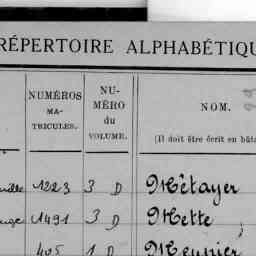 RÉPERTOIRE ALPHABÉTIQU
NUMÉROS MA- TRICULES.
NU- MÉRO du VOLUME.
NOM.
(Il doit être écrit en bâta
1223 3 D Métayer
1491 3 D Mette
405 1 D Meunier